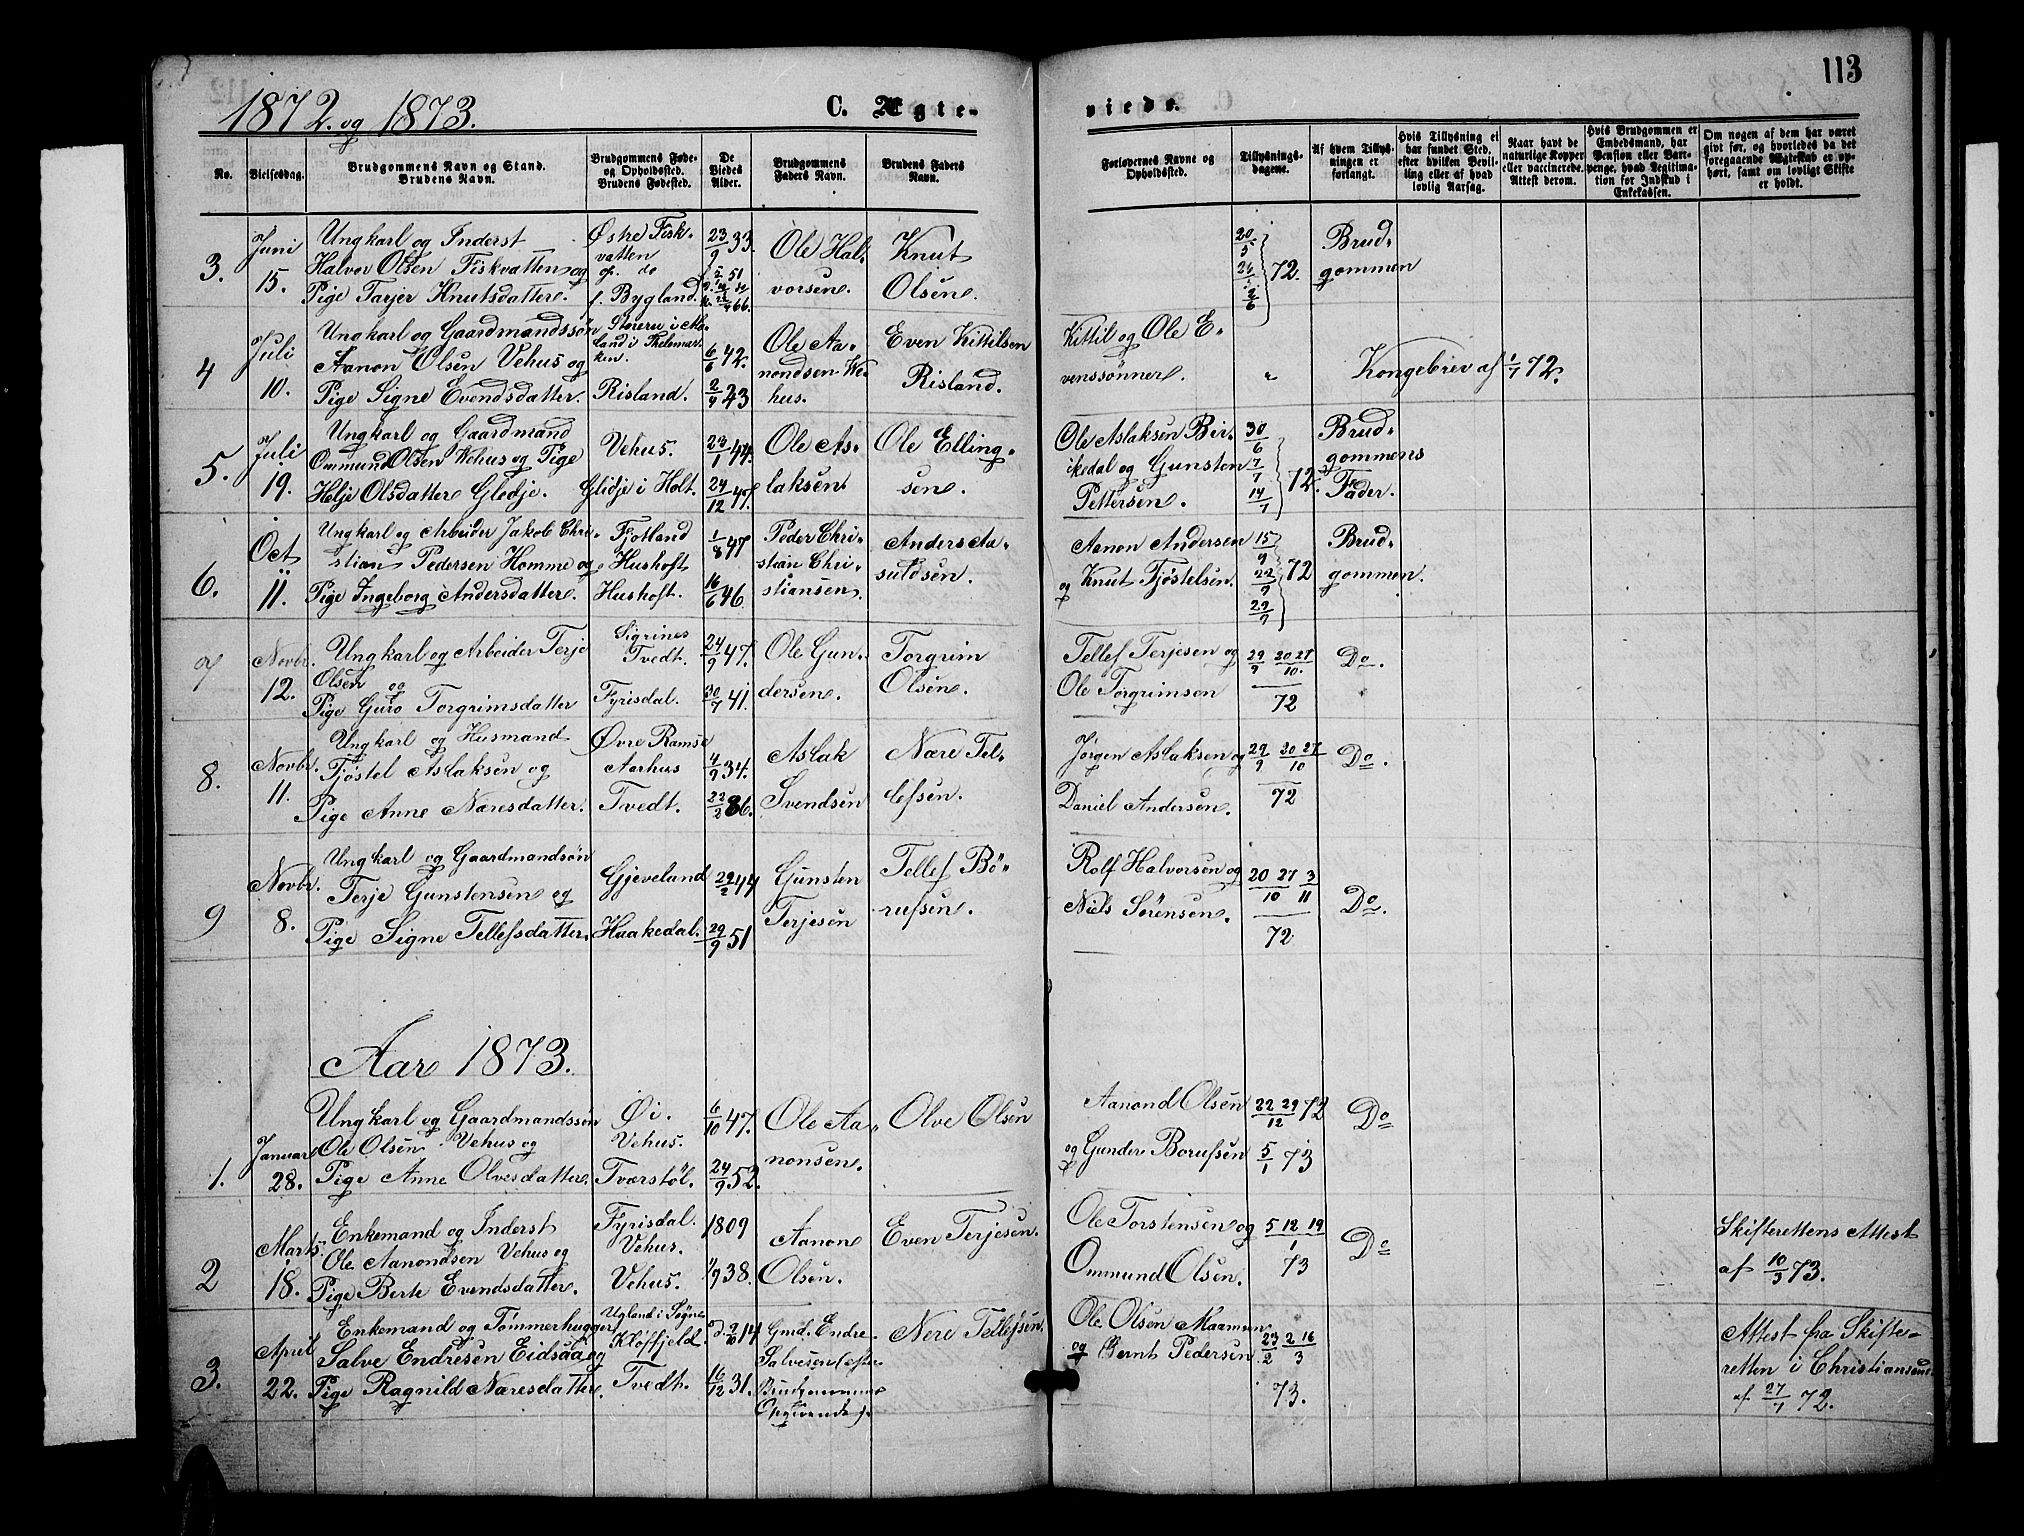 113
1872. og 1873.
C. Ægte-
viede.
No.
Vielsesdag.
Brudgommens Navn og Stand.
Brudens Navn.
Brudgommens Føde-
og Opholdssted.
Brudens Fødested.
De
Viedes
Alder.
Brudgommens
Faders Navn.
Brudens Faders
Navn.
Forlovernes Navne og
Opholdssted.
Tillysnings-
dagene.
Af hvem Tillys-
ningen er
forlangt.
Hvis Tillysning ei
har fundet Sted,
efter hvilken Bevil-
ling eller af hvad
lovlig Aarsag.
Naar havt de
naturlige Kopper
eller vaccinerede.
Attest derom.
Hvis Brudgommen er
Embedsmand, har
Pension eller Vart-
penge, hvad Legitima-
tion for Indskud i
Enkekassen.
Om nogen af dem har været
gift før, og hvorledes da det
foregaaende Ægteskab er op-
hørt, samt om lovligt Skifte
er holdt.
3.
Juni
15.
Ungkarl og Inderst
Halvor Olsen Fiskvatten og
Pige Tarjer Knutsdatter.
Østre Fisk-
vatten
op. do
f. Bygland.
23/9 33.
Ole Hal-
vorsen.
Knut
Olsen.
20/5 26/5 2/6 72.
Brud-
gommen
4
Juli
10.
Ungkarl og Gaardmandssøn
Aanon Olsen Vehus og
Pige Signe Evendsdatter.
land i Thelemar-
ken.
Risland.
6/6 42.
2/9 43
Ole Aa-
nondsen Ve-
hus.
Even Kittilsen
Risland.
Kittil og Ole E-
venssønner.
"
Kongebrev af 1/7 72.
5.
Juli
19.
Ungkarl og Gaardmand
Ommund Olsen Vehus og Pige
Helje Olsdatter Gledje.
Vehus.
Glidje i Holt.
23/1 44.
24/12 47.
Ole As-
laksen
Ole Elling-
sen.
Ole Aslaksen Bir-
ikedal og Gunsten
Pettersen.
30/6 7/7 14/7 72.
Brud-
gommens
Fader.
6.
Oct
11.
Ungkarl og Arbeider Jakob Chri-
stian Pedersen Homme og
Pige Ingeborg Andersdatter.
Fjotland
Hushoft
Hushoft.
1/8 47
16/6 46.
Peder Chri-
stian Chri-
stiansen.
Anders Aa-
suldsen.
Aanon Andersen
og Knut Tjøstelsen.
15/9 22/9 29/9 72
Brud-
gommen.
7
Novbr.
12.
Ungkarl og Arbeider Terje
Olsen og
Pige Guro Torgrimsdatter
Sigrines
Tvedt.
Fyrisdal.
24/9 47.
30/7 41.
Ole Gun-
dersen.
Torgrim
Olsen.
Tellef Terjesen og
Ole Torgrimsen
29/9 20 27/10.
72
Do.
8.
Novbr.
11.
Ungkarl og Husmand
Tjøstel Aslaksen og
Pige Anne Næresdatter.
Øvre Ramse
Aarhus
Tvedt.
4/9 34.
22/2 36.
Aslak
Svendsen
Nære Tel-
lefsen.
Jørgen Aslaksen og
Daniel Andersen.
29/9 20 27/10
72
Do.
9
Novbr.
8.
Ungkarl og Gaardmandsøn
Terje Gunstensen og
Pige Signe Tellefsdatter.
Gjeveland
Haakedal.
29/2 44
29/9 51
Gunsten
Terjesen
Tellef Bø-
rufsen.
Rolf Halvorsen og
Niels Sørensen.
20 27/10 3/11
72
Do.
Aar 1873.
1.
Januar
28.
Ungkarl og Gaardmandssøn
Ole Olsen Vehus og
Pige Anne Olvesdatter.
Øi.
Vehus.
Tverstøl.
6/10 47.
24/9 52.
Ole Aa-
nonsen.
Olve Olsen
Aanond Olsen
og Gunder Borufsen
22 29/12 72
5/1 73
Do
2
Marts.
18.
Enkemand og Inderst
Ole Aanondsen Vehus og
Pige Berte Evendsdatter.
Fyrisdal.
Vehus.
Vehus.
1809
1/9 38.
Aanon
Olsen.
Even Terjesen.
Ole Torstensen og
Ommund Olsen.
5 12 19/1
73
Do
Skifterettens Attest
af 10/3 73.
3.
April
22.
Enkemand og Tømmerhugger
Salve Endresen Eidsaa og
Pige Ragnild Næresdatter.
Ugland i Søgne
Kløffjeld.
Tvedt.
14
16/12 31.
Gmd. Endre
Salvesen (efter
Brudgommens
Opgivende).
Nere Tellefsen.
Ole Olsen Maamun
og Bernt Pedersen
23/2 2 16/3
73.
Attest fra Skifte-
retten i Christiansand
af 27/7 72.